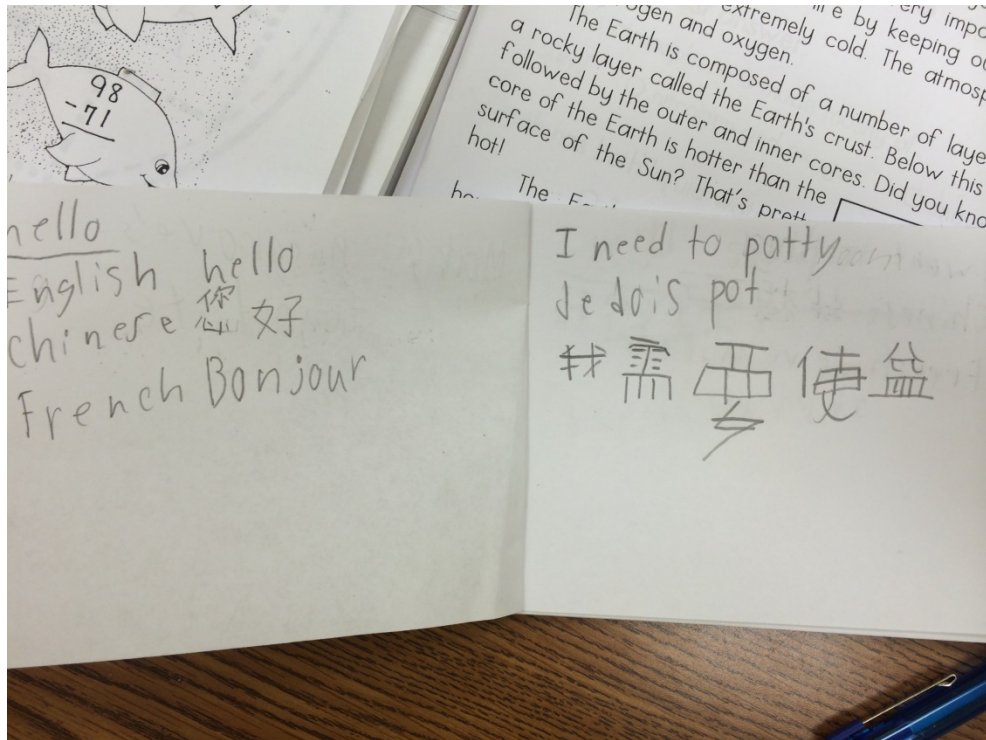 98
-71
extremely cold. The atmosp
gen and oxygen.
The Earth is composed of a number of laye
a rocky layer called the Earth's crust. Below this
followed by the outer and inner cores. Did you kno
core of the Earth is hotter than the
surface of the Sun? That's prett
hot!
The
hello
English hello
Chinese 您好
French Bonjour
I need to potty
de dois pot
我需要使盆